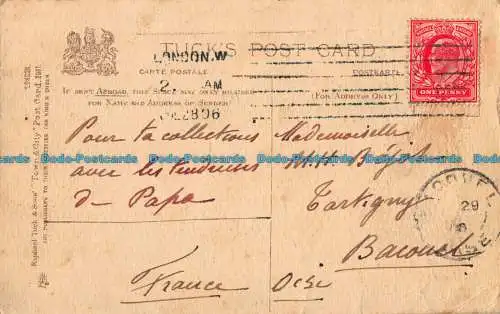 TUCK'S POST CARD
CARTE POSTALE
POSTKARTE
(FOR ADDRESS ONLY)
IF SENT ABROAD, THIS SPACE MAY ONLY BE USED
FOR NAME AND ADDRESS OF SENDER
LONDON.W
AM
DE 28 06
ONE PENNY
Raphael Tuck & Sons' "Town & City" Post Card
ART PUBLISHERS TO THEIR MAJESTIES THE KING & QUEEN
Pour ta collection
avec les tendresses
de Papa
Mademoiselle
M.H.
Tartigny
Bacouel
France Oise
BACOUEL
29
Dodo-Postcards Dodo-Postcards Dodo-Postcards Dodo-Postcards Dodo-Postcards